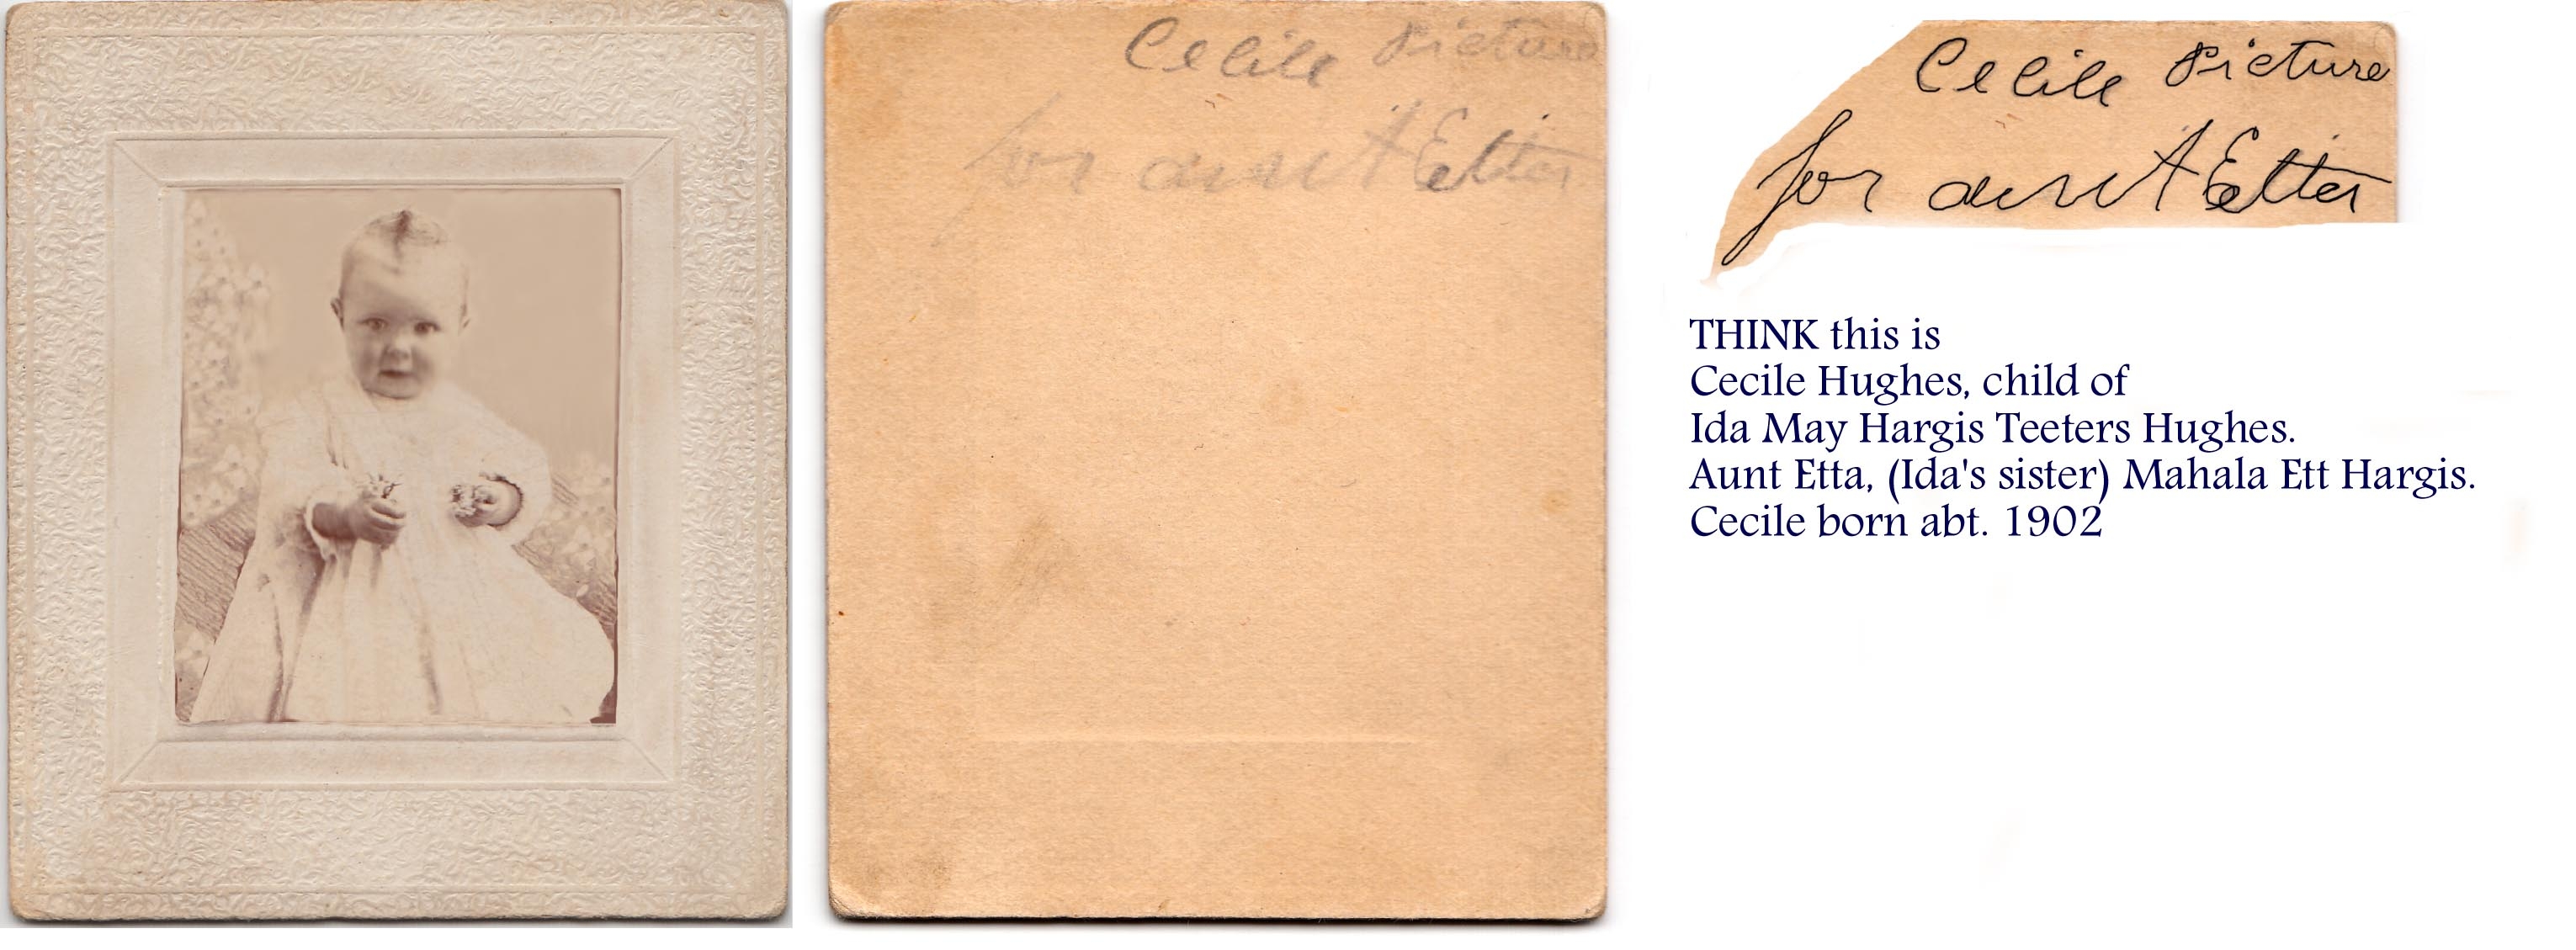 Cecile Picture
for aunt Etter
Cecile Picture
for aunt Etter
THINK this is
Cecile Hughes, child of
Ida May Hargis Teeters Hughes.
Aunt Etta, (Ida's sister) Mahala Ett Hargis.
Cecile born abt. 1902